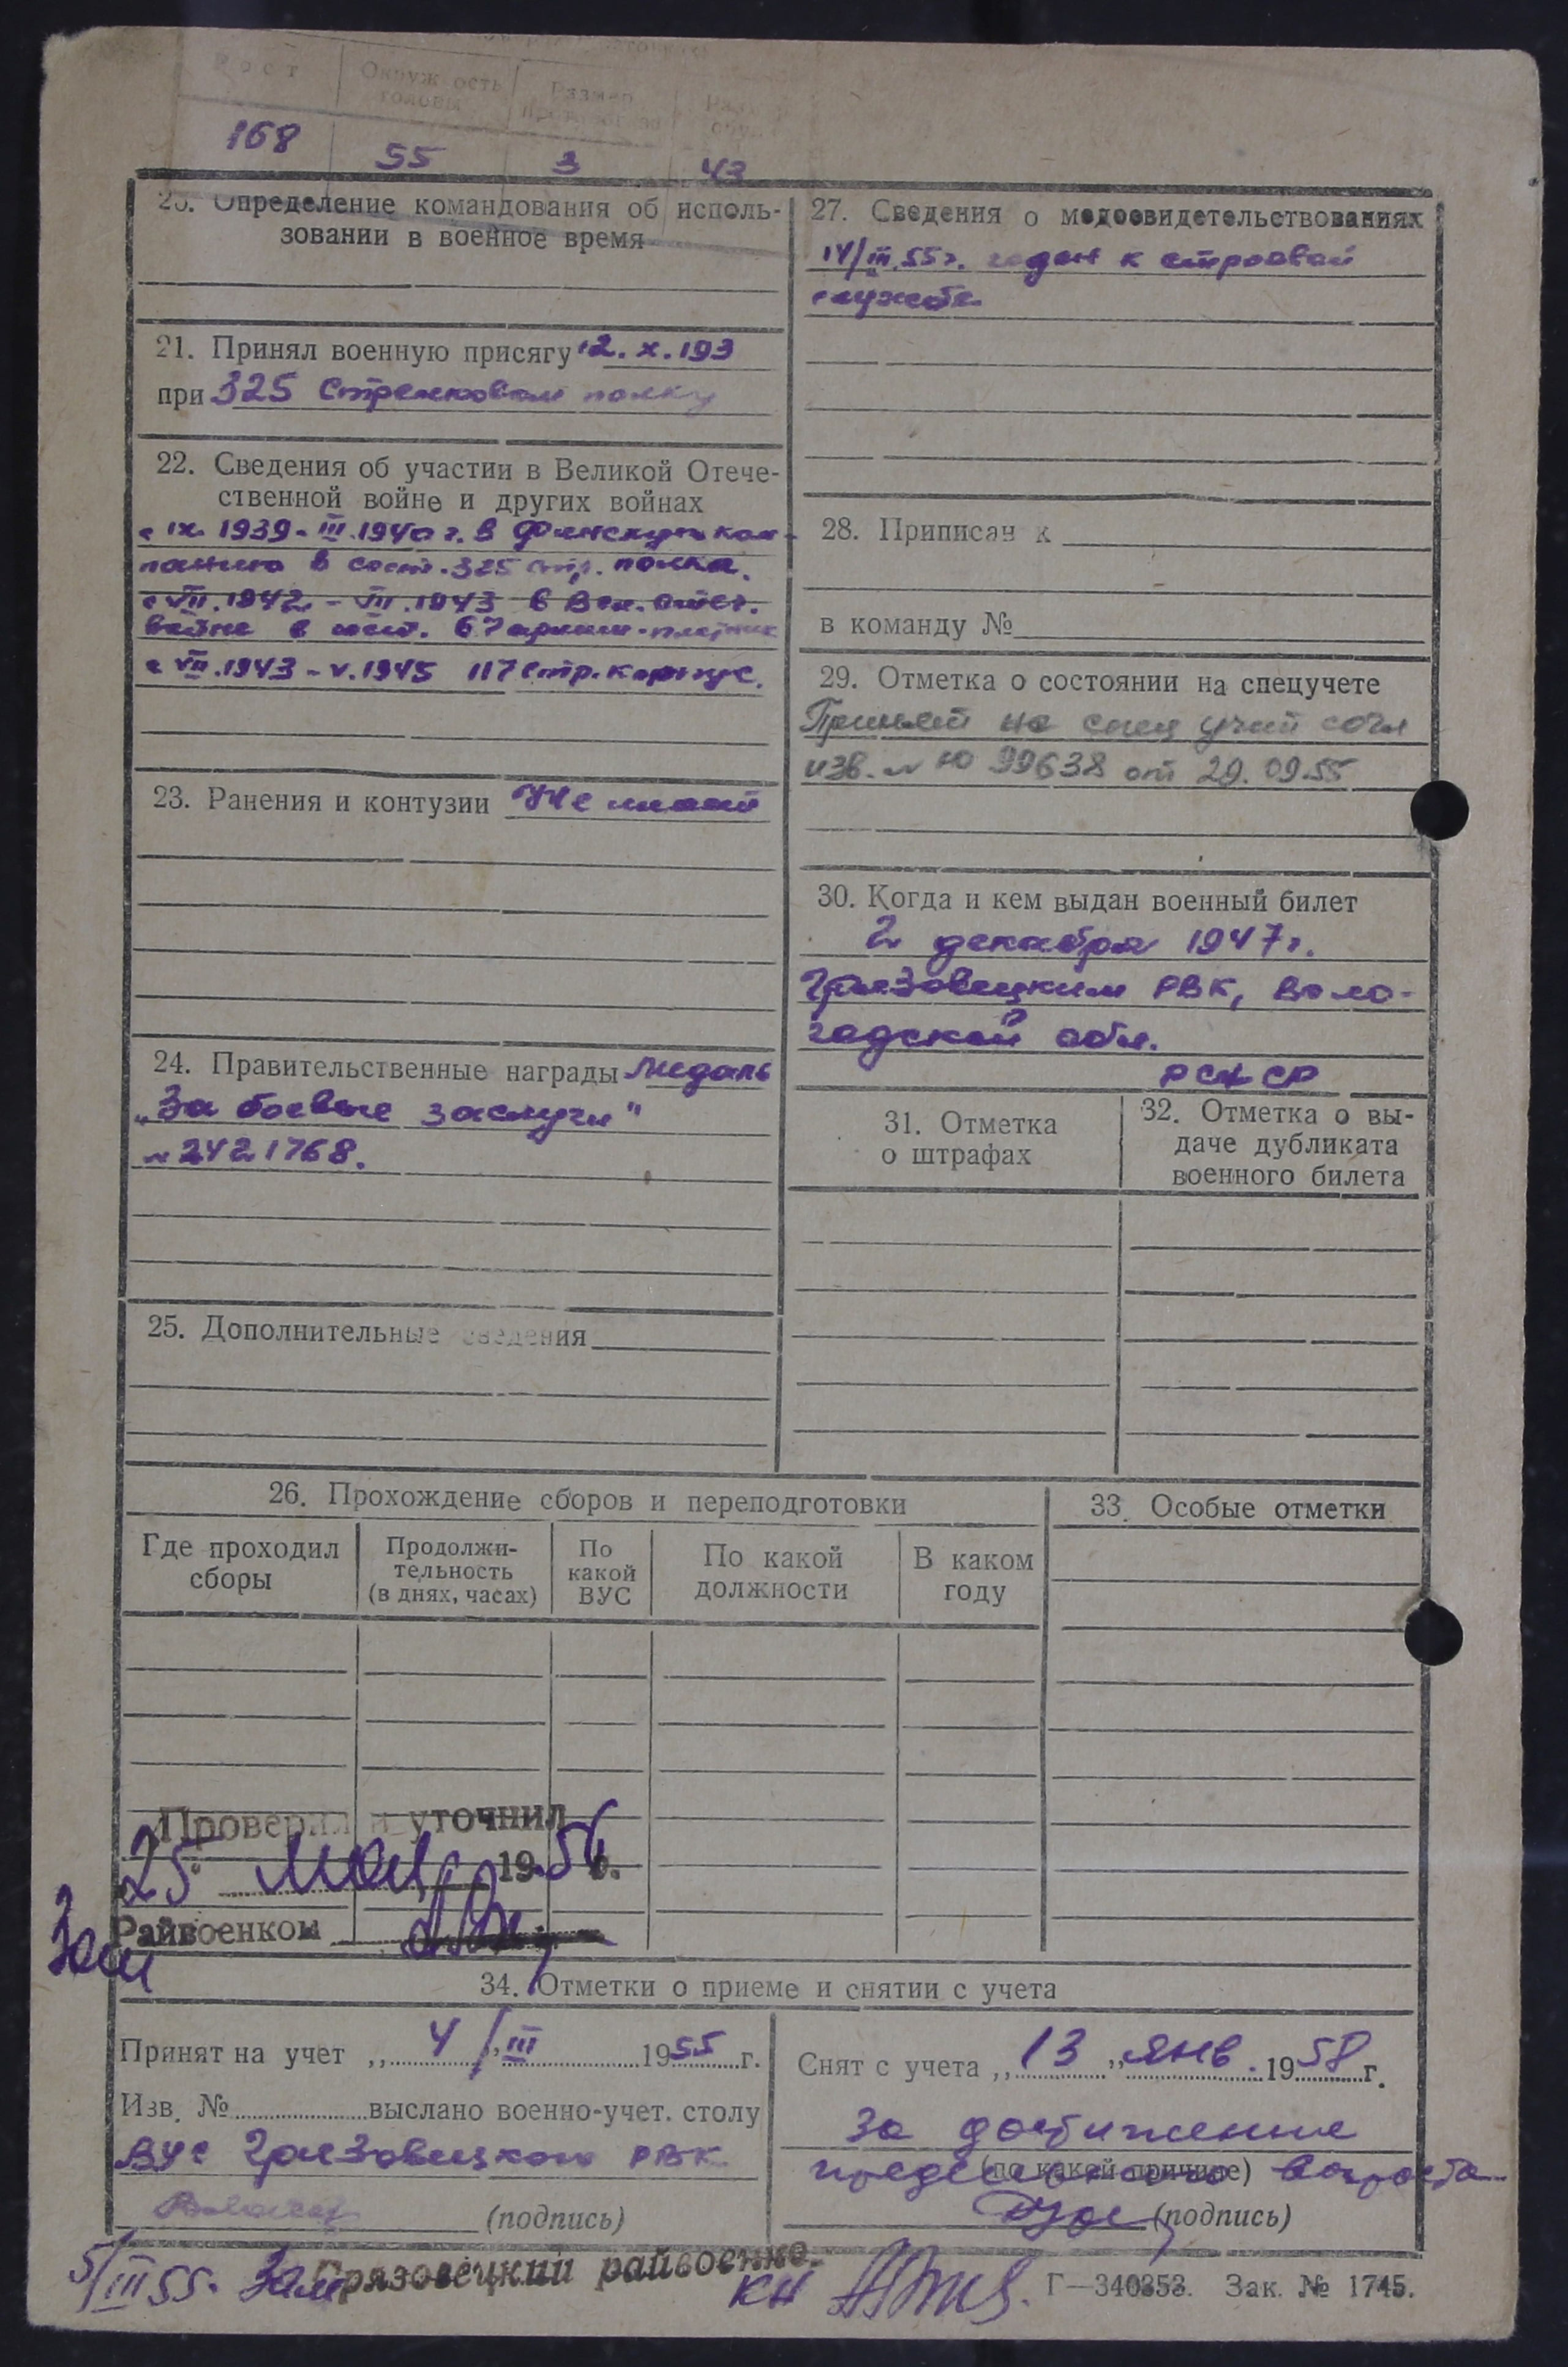 Рост
Окружность головы
Размер
168 55 3 43
20. Определение командования об исполь-
зовании в военное время
21. Принял военную присягу 12. X. 193
при 325 Стрелковом полку
22. Сведения об участии в Великой Отече-
ственной войне и других войнах
с IX. 1939 - III. 1940 г. в Финскую кам-
панию в сост. 325 стр. полка.
с VII. 1942 - VII. 1943 в Вел. Отеч.
войне в сост. 67 армии
с VII. 1943 - V. 1945 117 стр. корпус.
23. Ранения и контузии Не имеет
24. Правительственные награды медаль
„За боевые заслуги"
№ 2421768.
25. Дополнительные сведения
27. Сведения о медосвидетельствованиях
14/III.55 г. годен к строевой
службе
28. Приписан к
в команду №
29. Отметка о состоянии на спецучете
Принят на спец учет согл
изв. № Ю 99638 от 29.09.55
30. Когда и кем выдан военный билет
2 декабря 1947 г.
Грязовецким РВК, Воло-
годской обл.
РСФСР
31. Отметка
о штрафах
32. Отметка о вы-
даче дубликата
военного билета
26. Прохождение сборов и переподготовки
Где проходил
сборы
Продолжи-
тельность
(в днях, часах)
По
какой
ВУС
По какой
должности
В каком
году
33. Особые отметки
Проверил и уточнил
25 мая 1956.
Зам Райвоенком
34. Отметки о приеме и снятии с учета
Принят на учет „ 4 /" III 1955 г.
Изв. № выслано военно-учет. столу
ВУС Грязовецкого РВК
(подпись)
Снят с учета „ 13 " янв. 1958 г.
За достижение
предельного возраста
(по какой причине)
(подпись)
5/III 55. Зам Грязовецкий райвоенко.
Г—340353. Зак. № 1745.